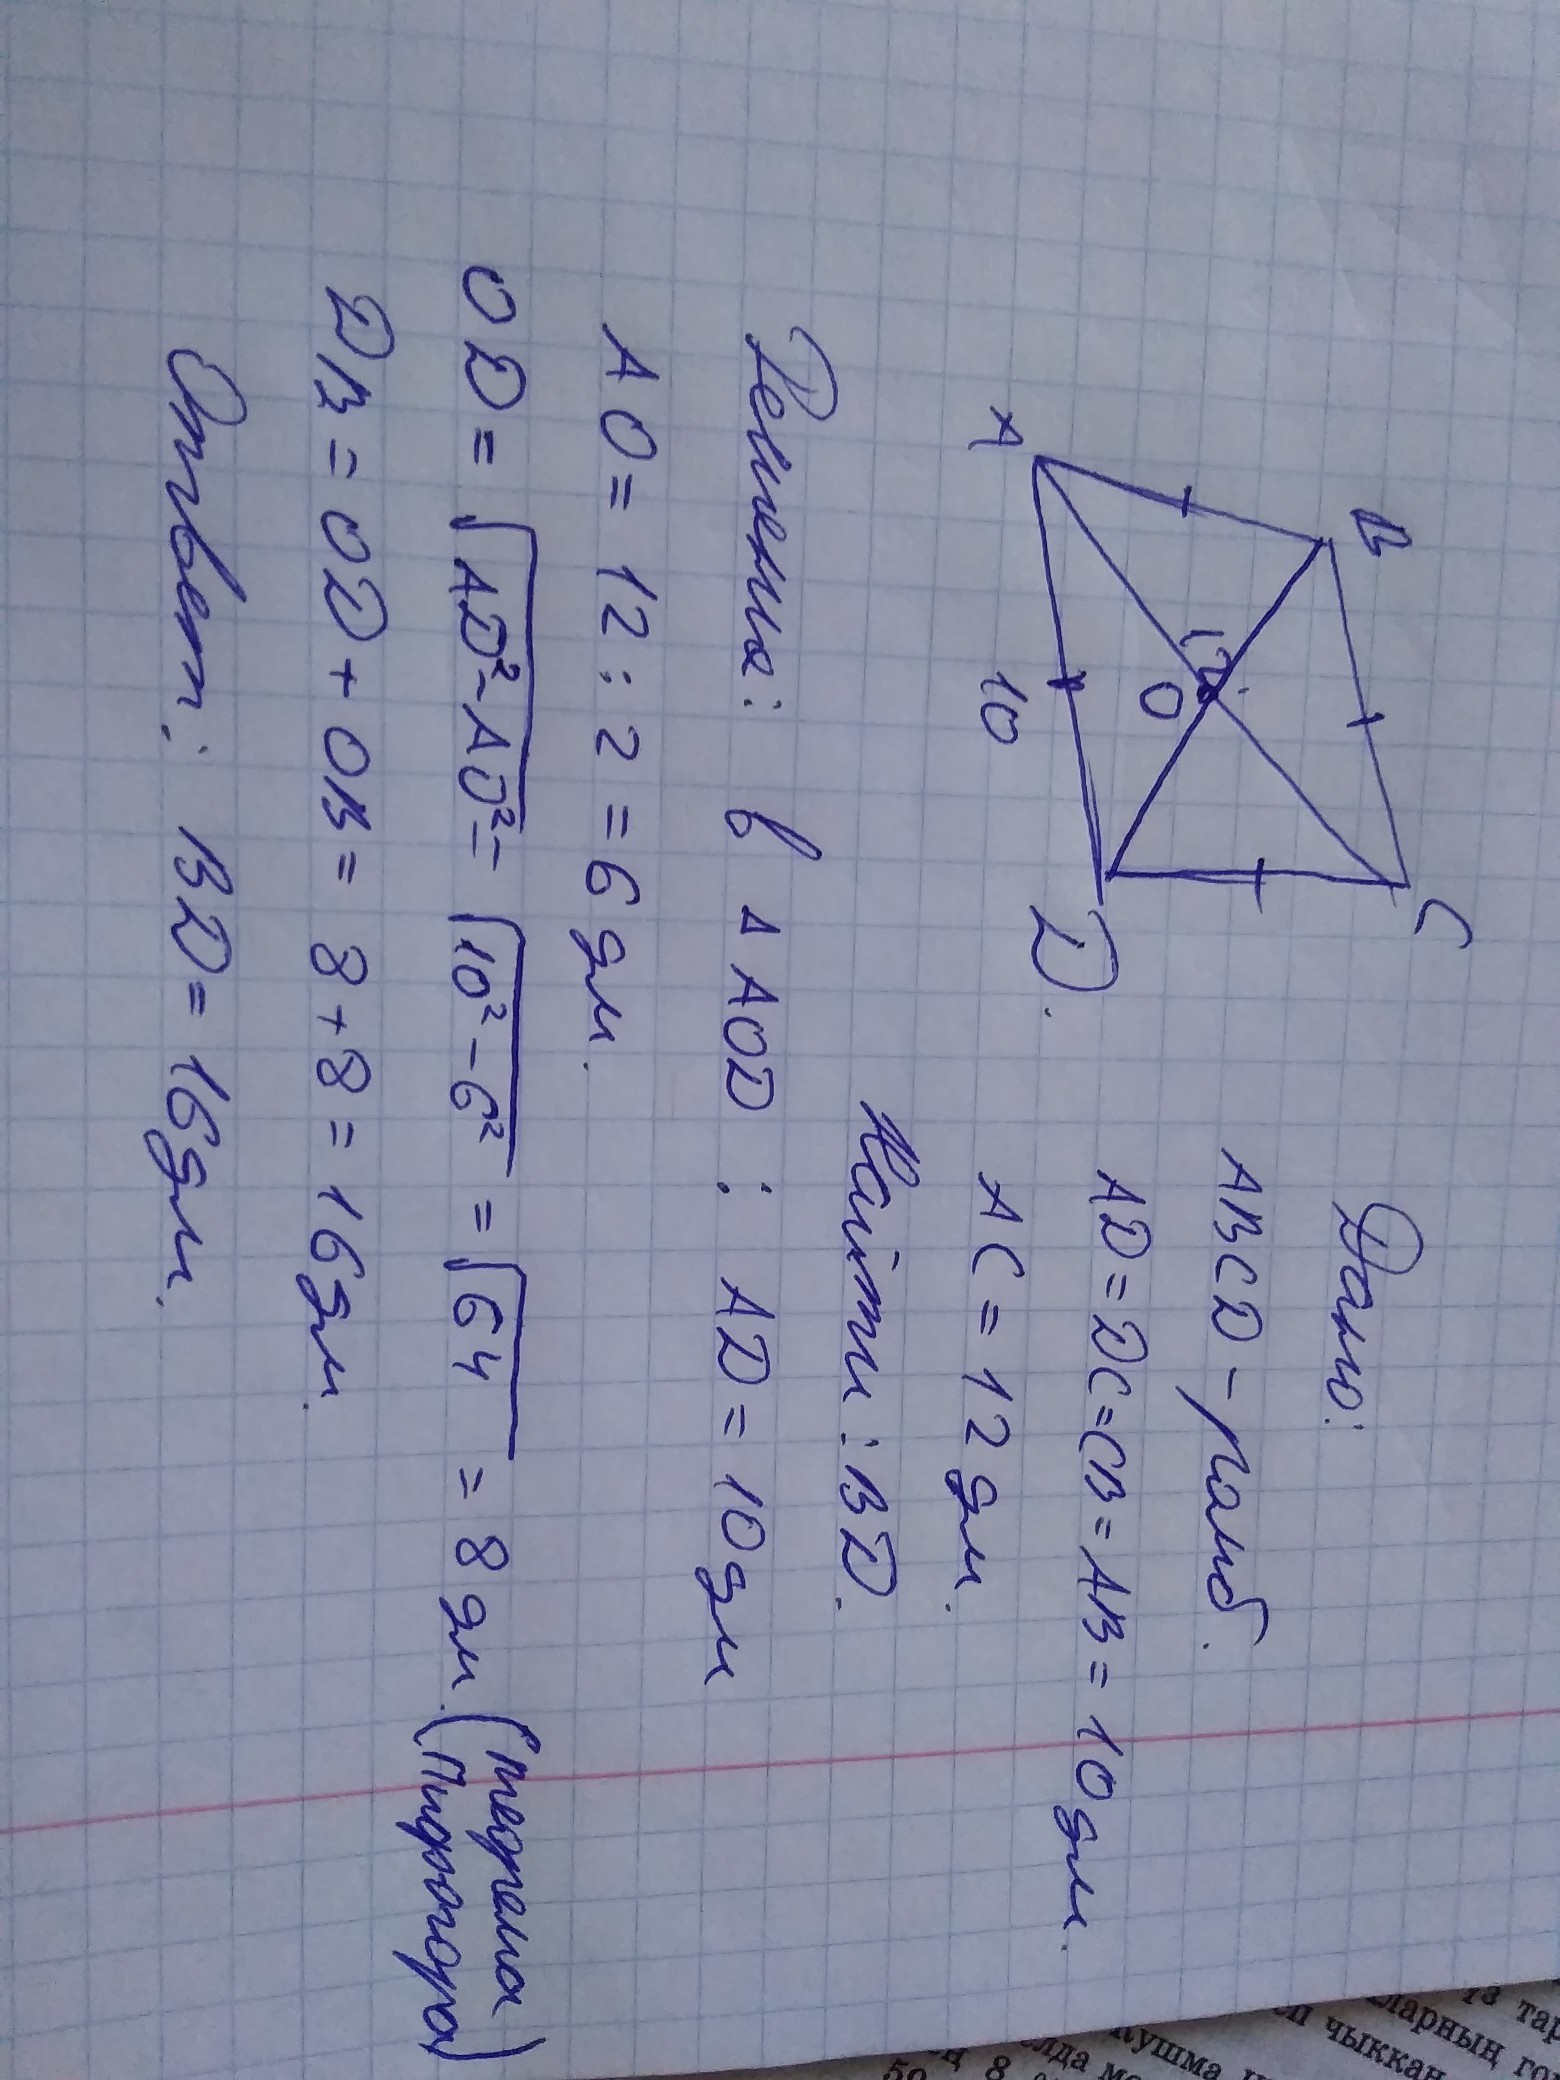 Дано:
ABCD - ромб.
AD = DC = CB = AB = 10 дм.
AC = 12 дм.
Найти: BD.
B
C
A
D.
12
O
10
Решение: в Δ AOD : AD = 10 дм
AO = 12 : 2 = 6 дм.
OD = √AD² - AO² = √10² - 6² = √64 = 8 дм. (теорема
Пифагора)
DB = OD + OB = 8 + 8 = 16 дм.
Ответ: BD = 16 дм.
13 тар
ларның
чыккан
кушма
елда
8
50